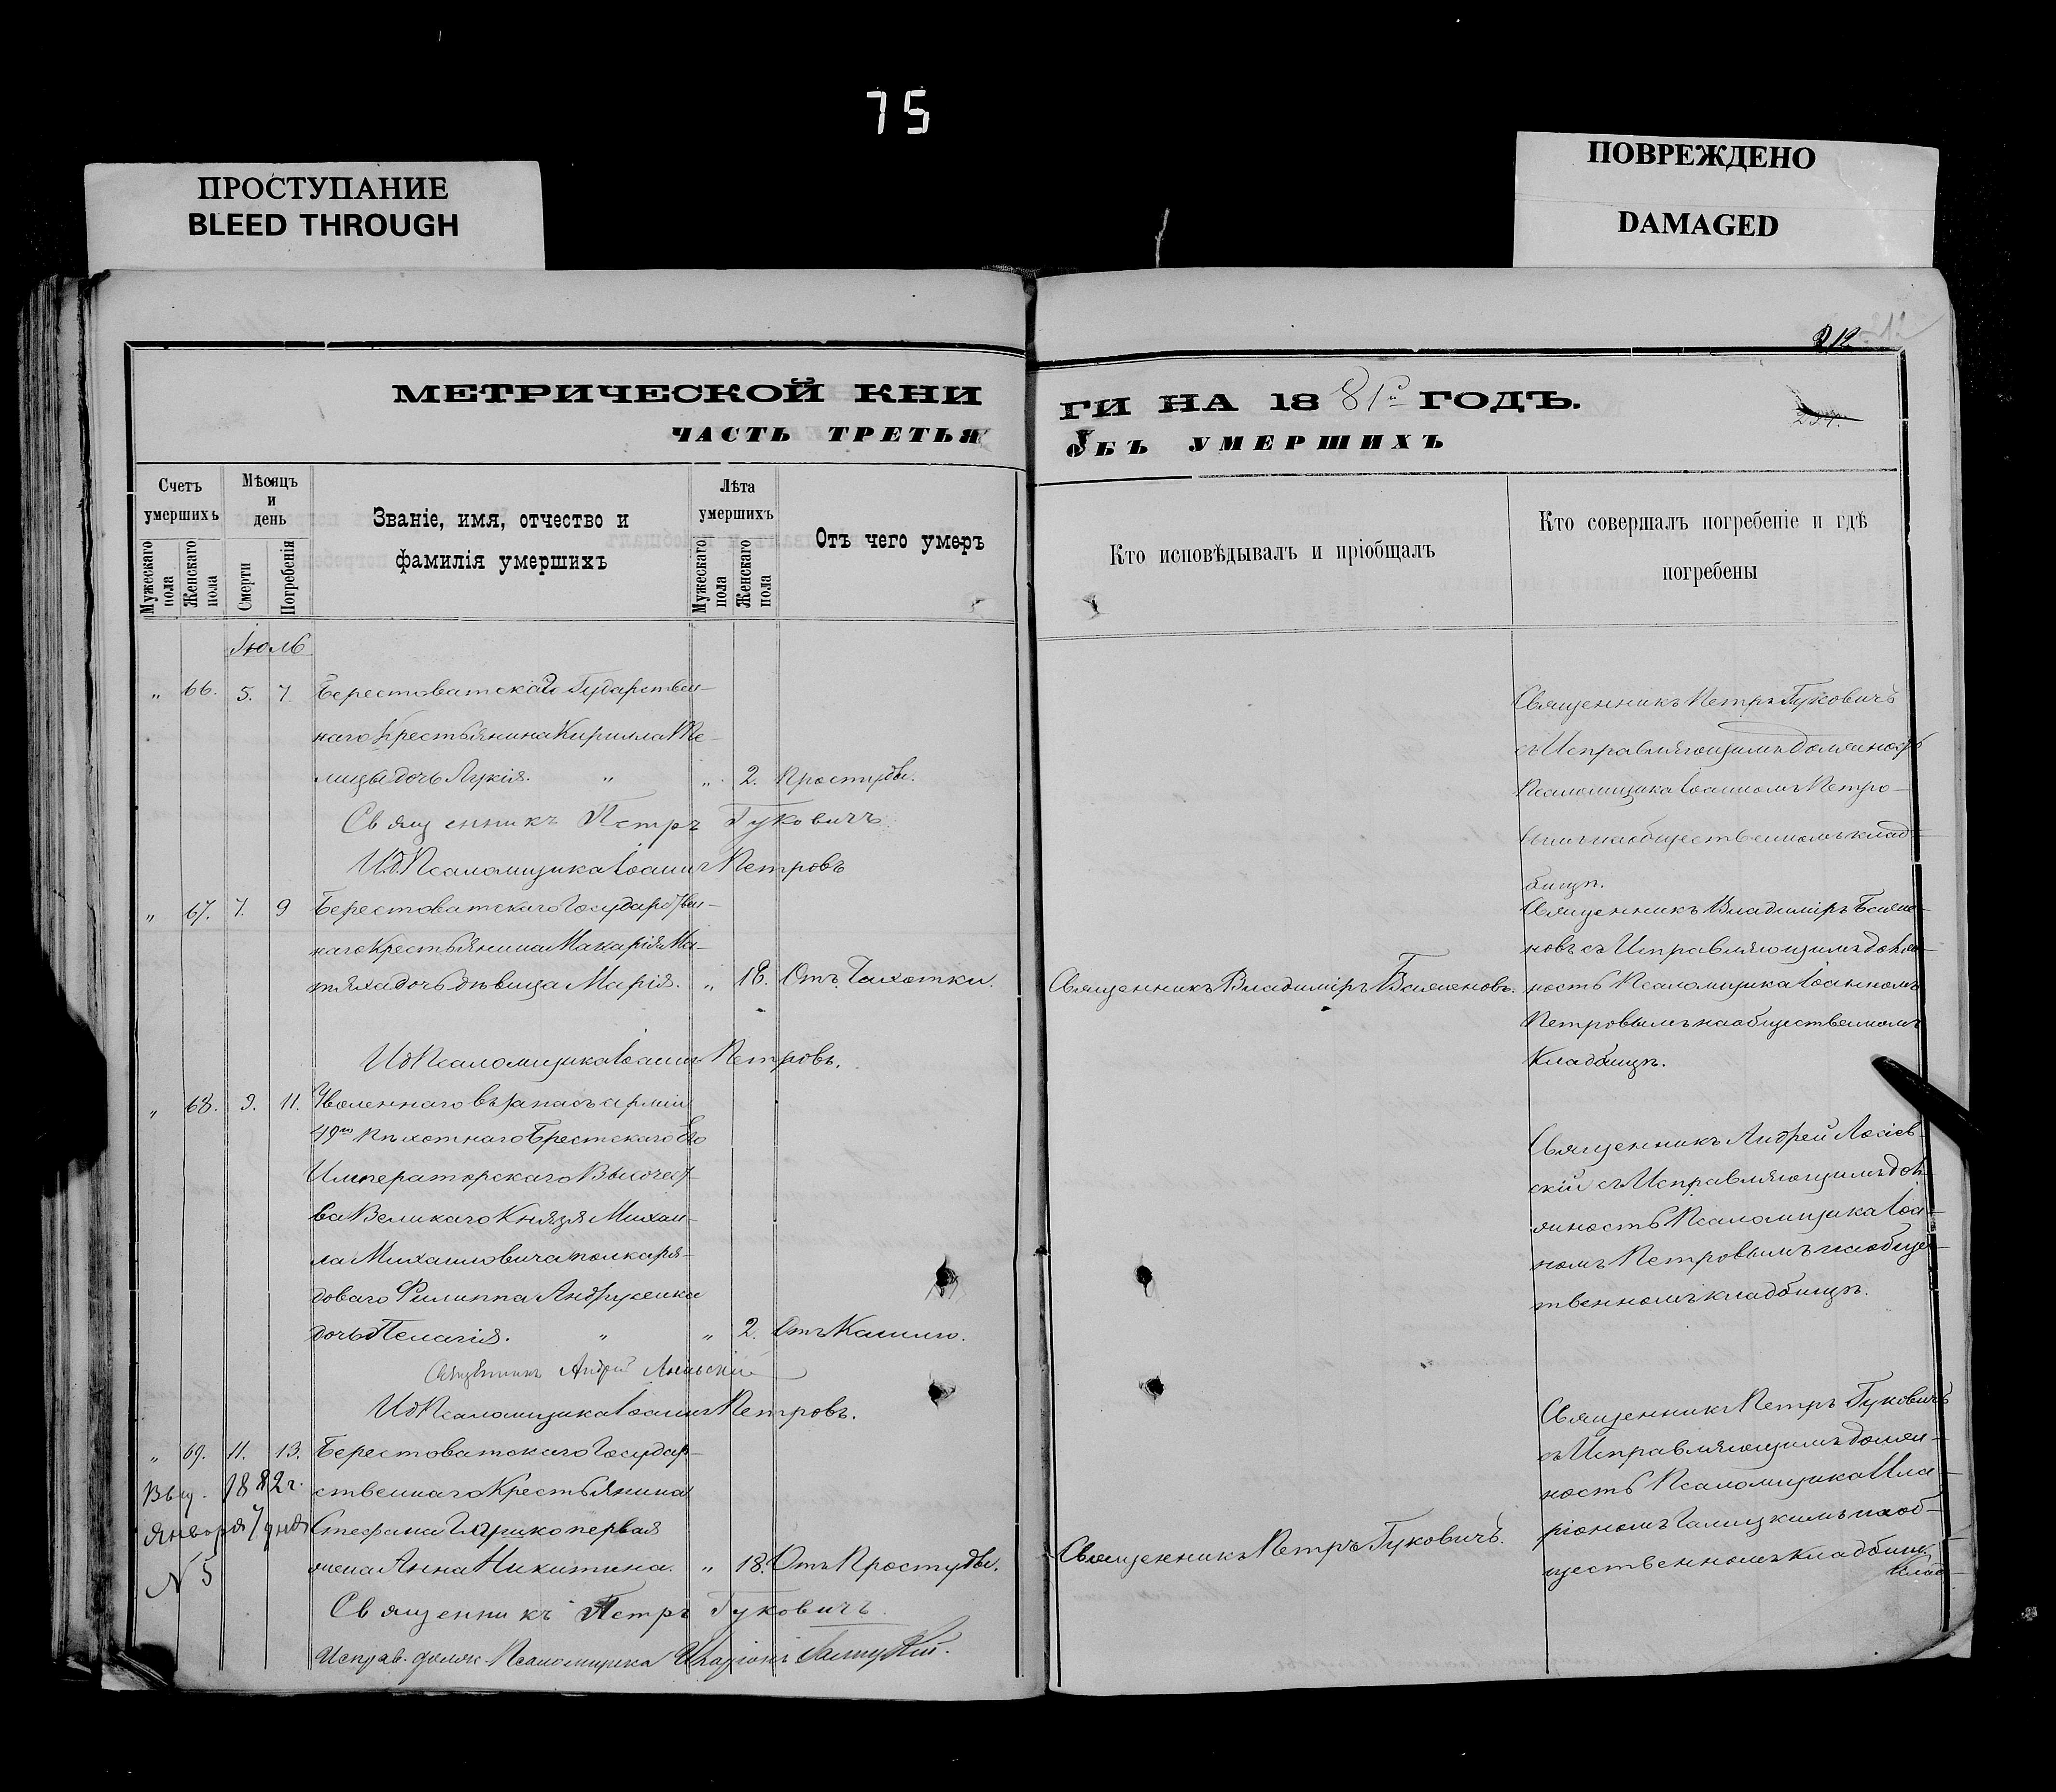 75
ПРОСТУПАНИЕ
BLEED THROUGH
ПОВРЕЖДЕНО
DAMAGED
212
МЕТРИЧЕСКОЙ КНИ
ЧАСТЬ ТРЕТЬЯ
Счетъ умершихъ
Мужескаго пола
Женскаго пола
Мѣсяцъ и день
Смерти
Погребенія
Званіе, имя, отчество и
фамилія умершихъ
Лѣта умершихъ
Мужескаго пола
Женскаго пола
Отъ чего умеръ
Іюль
„ 66. 5. 7. Берестоватскаго Гударствен-
наго Крестьянина Кирилла
дочь Лукія. „ „ 2. Простуды.
Священникъ Петръ Гуковичъ
И.д. Псаломщика Іоаннъ Петровъ
„ 67. 7. 9 Берестоватскаго Государствен-
наго Крестьянина Макарія Ма-
дочь дѣвица Марія. „ 18. Отъ Чахотки.
И.д. Псаломщика Іоаннъ Петровъ.
„ 68. 9. 11. Уволеннаго въ запасъ арміи
49го Пѣхотнаго Брестскаго Его
Императорскаго Высочест-
ва Великаго Князя Михаи-
ла Михаиловича полка ря-
доваго Филиппа Андрусенка
дочь Пелагія. „ „ 2. Отъ Кашлю.
Священникъ Андрей
И.д. Псаломщика Іоаннъ Петровъ.
„ 69. 11. 13. Берестоватскаго Государ-
Выд. 1882 г. ственнаго Крестьянина
Января 7 дня Стефана первая
N 5 жена Анна Никитина. „ 18. Отъ Простуды.
Священникъ Петръ Гуковичъ
Исправ. должн. Псаломщика Иларіонъ Галицкій.
ГИ НА 1881й ГОДЪ.
ОБЪ УМЕРШИХЪ
Кто исповѣдывалъ и пріобщалъ
Кто совершалъ погребеніе и гдѣ
погребены
Священникъ Петръ Гуковичъ
съ Исправляющимъ должность
Псаломщика Іоанномъ Петро-
вымъ на общественномъ клад-
бищѣ.
Священникъ Владиміръ
новъ съ Исправляющимъ долж-
Священникъ Владиміръ ность Псаломщика Іоанномъ
Петровымъ на общественномъ
Кладбищѣ.
Священникъ Андрей
скій съ Исправляющимъ дол-
жность Псаломщика Іоа-
номъ Петровымъ на общес-
твенномъ кладбищѣ.
Священникъ Петръ Гуковичъ
съ Исправляющимъ должн-
ность Псаломщика Ила-
ріономъ Галицкимъ на об-
Священникъ Петръ Гуковичъ. щественномъ кладбищѣ.